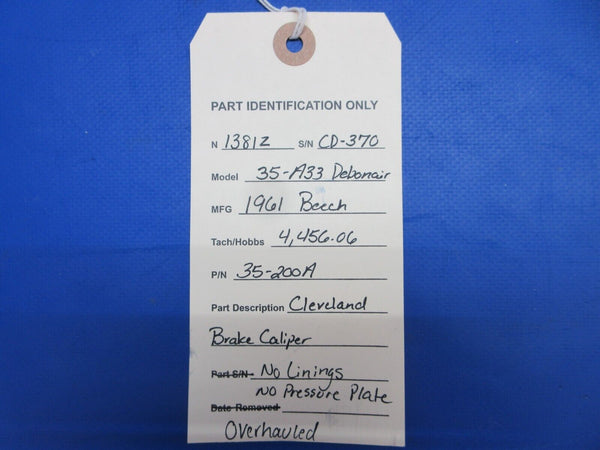 PART IDENTIFICATION ONLY
N 1381Z S/N CD-370
Model 35-A33 Debonair
MFG 1961 Beech
Tach/Hobbs 4,456.06
P/N 35-200A
Part Description Cleveland
Brake Caliper
Part S/N No Linings
No Pressure Plate
Date Removed
Overhauled